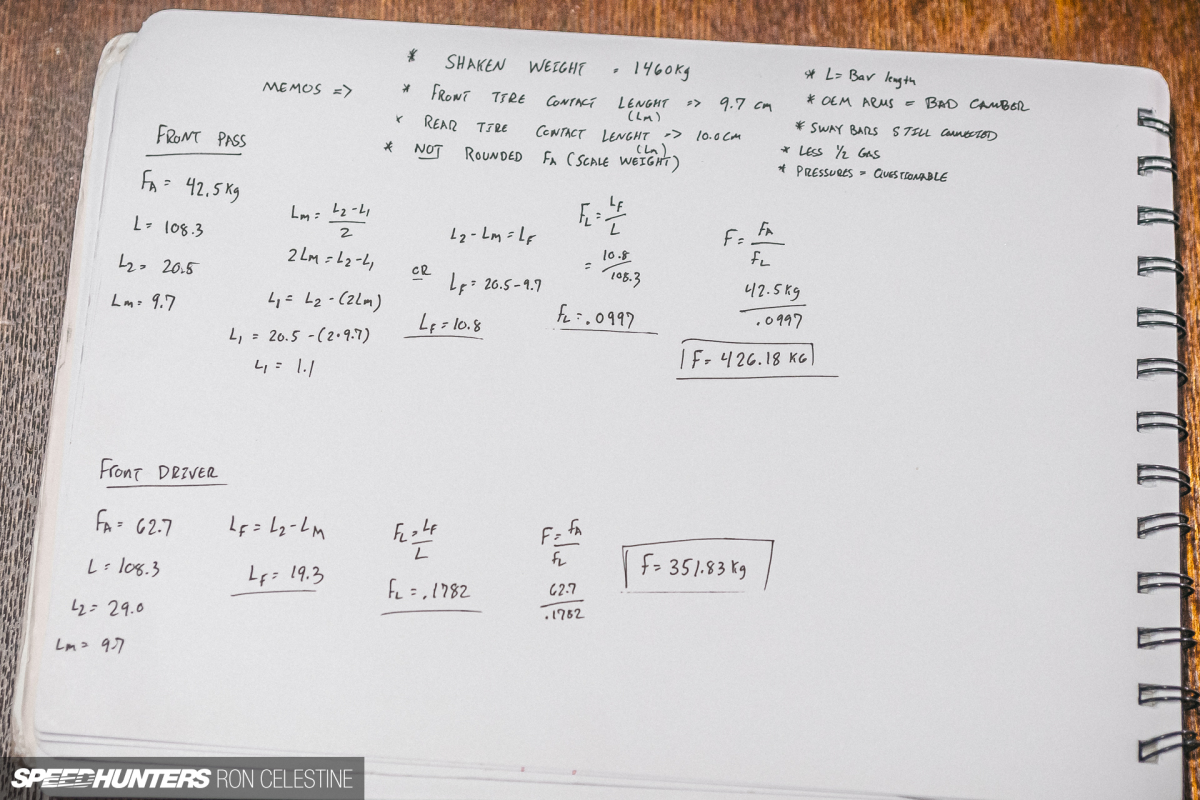 * SHAKEN WEIGHT = 1460Kg
MEMOS => * FRONT TIRE CONTACT LENGHT => 9.7 cm
(Lm)
* REAR TIRE CONTACT LENGHT => 10.0cm
(Lm)
* NOT ROUNDED FA (SCALE WEIGHT)
* L= Bar length
* OEM ARMS = BAD CAMBER
* SWAY BARS STILL CONNECTED
* LESS 1/2 GAS
* PRESSURES = QUESTIONABLE
FRONT PASS
FA = 42.5Kg
L= 108.3
L2= 20.5
Lm= 9.7
Lm = L2-L1/2
2Lm = L2-L1
L1 = L2 -(2Lm)
L1 = 20.5 -(2•9.7)
L1 = 1.1
L2 - Lm = LF
OR
LF = 20.5-9.7
LF = 10.8
FL = LF/L
= 10.8/108.3
FL = .0997
F = FA/FL
42.5Kg/.0997
F= 426.18 KG
FRONT DRIVER
FA = 62.7
L = 108.3
L2= 29.0
Lm= 9.7
LF = L2-LM
LF = 19.3
FL = LF/L
FL = .1782
F= FA/FL
62.7/.1782
F= 351.83 Kg
SPEEDHUNTERS RON CELESTINE